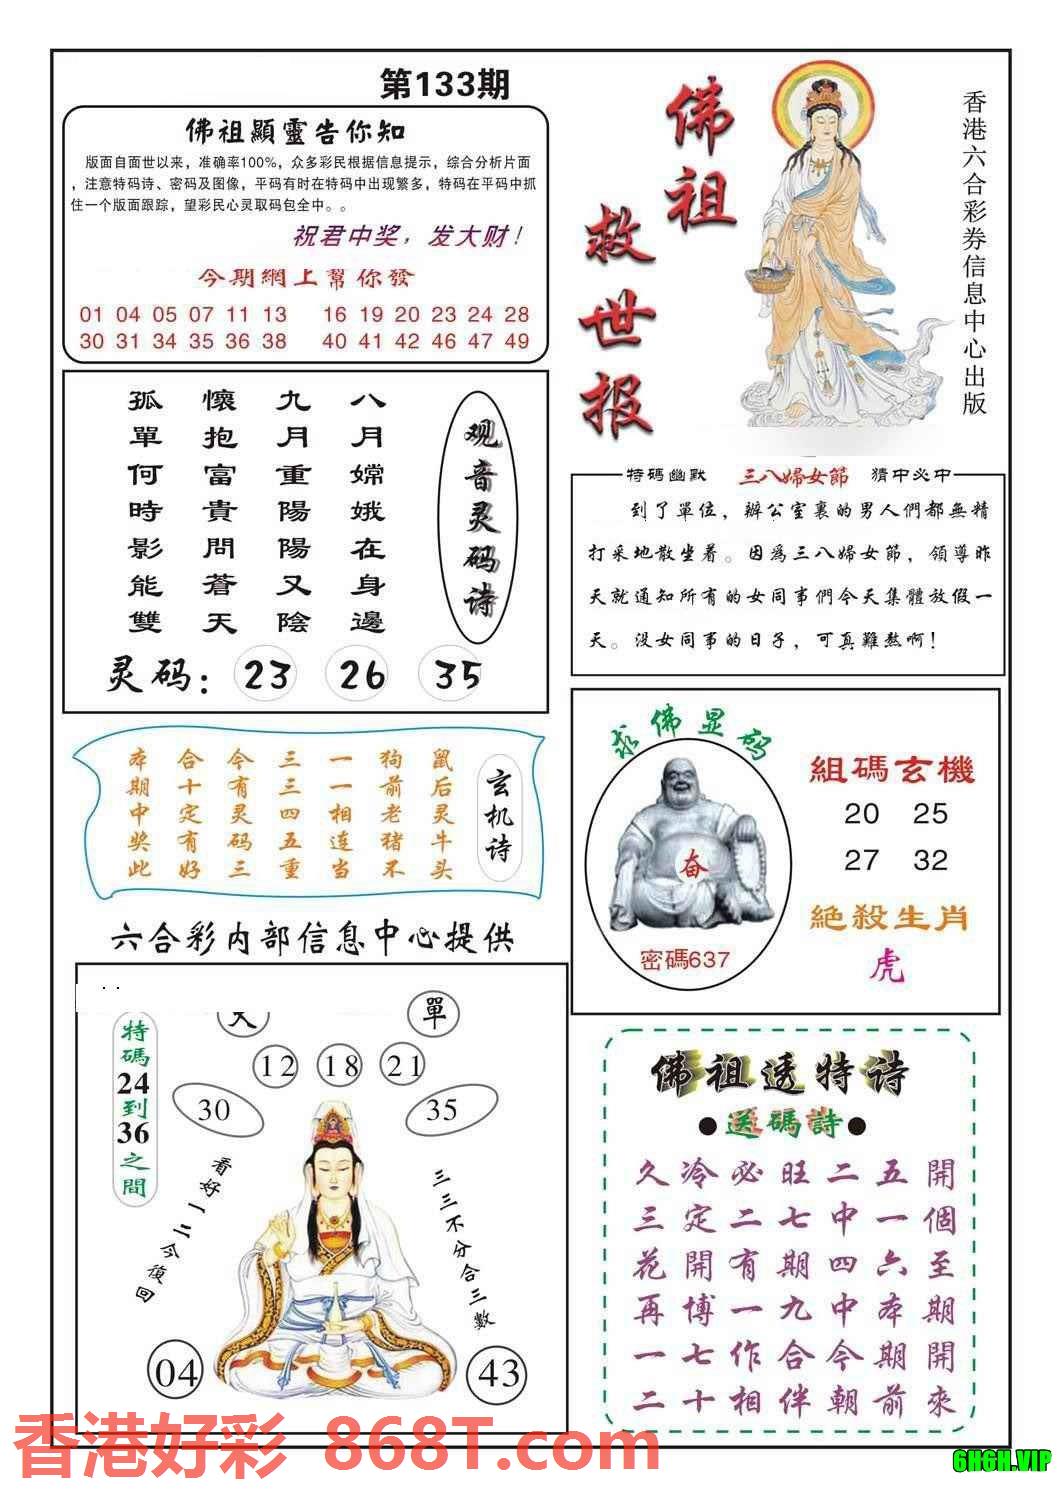 第133期
佛祖顯靈告你知
版面自面世以来，准确率100%，众多彩民根据信息提示，综合分析片面
，注意特码诗、密码及图像，平码有时在特码中出现繁多，特码在平码中抓
住一个版面跟踪，望彩民心灵取码包全中。。
祝君中奖，发大财！
今期網上幫你發
01 04 05 07 11 13 16 19 20 23 24 28
30 31 34 35 36 38 40 41 42 46 47 49
佛祖
救世报
香港六合彩券信息中心出版
观音灵码诗
八月嫦娥在身邊
九月重陽陽又陰
懷抱富貴問蒼天
孤單何時影能雙
灵码：23 26 35
特碼幽默 三八婦女節 猜中必中
到了單位，辦公室裏的男人們都無精
打采地散坐着。因爲三八婦女節，領導昨
天就通知所有的女同事們今天集體放假一
天。没女同事的日子，可真難熬啊！
玄机诗
鼠后灵牛头
狗前老猪不
一一相连当
三三四五重
今有灵码三
合十定有好
本期中奖此
求佛显码
奋
密碼637
組碼玄機
20 25
27 32
絕殺生肖
虎
六合彩内部信息中心提供
單
12 18 21
30 35
特碼24到36之間
看好一二今復回
三三不分合三數
04 43
佛祖透特诗
●送碼詩●
久冷必旺二五開
三定二七中一個
花開有期四六至
再博一九中本期
一七作合今期開
二十相伴朝前來
香港好彩 868T.com
6H6H.VIP